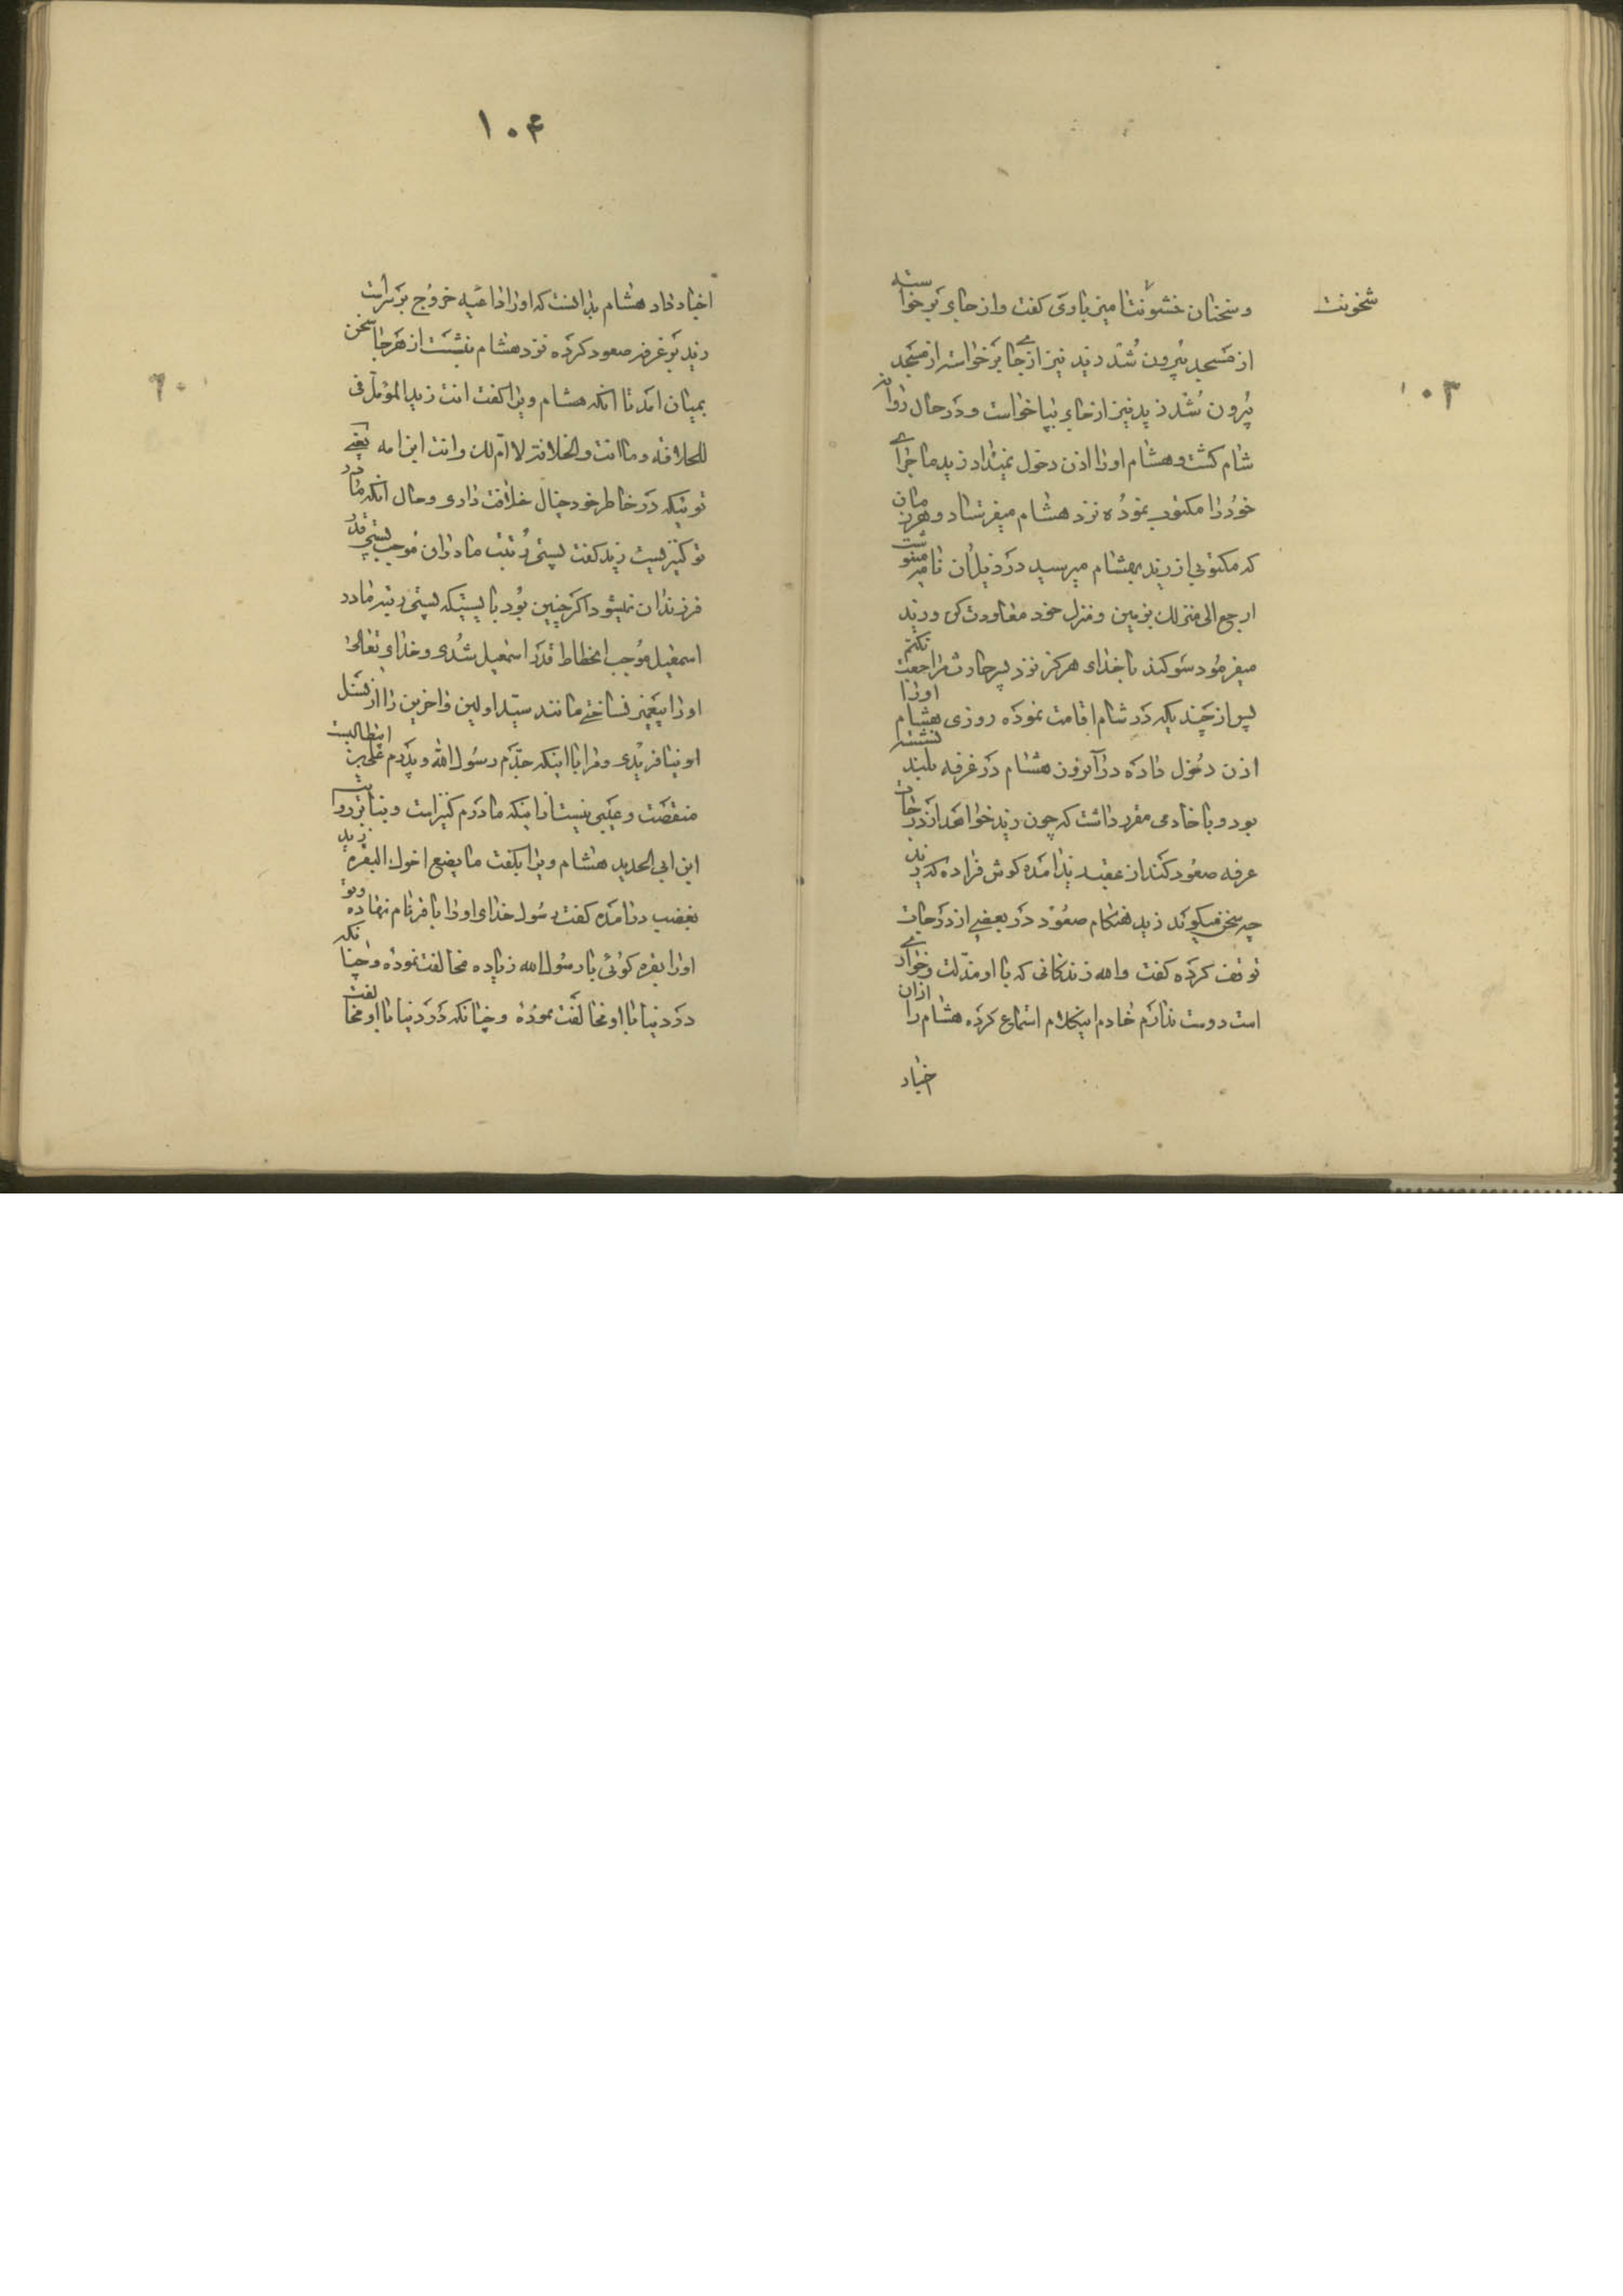 ۱۰۳
شخونت
و سخنان خشونت امیز باوی کفت و از جای برخواسته
از مسجد بیرون شد زید نیز از جای برخواست از مسجد
بیرون شد زید نیز از جای بپا خواست و در حال روانه
شام کشت و هشام اورا اذن دخول نمیداد زید ماجرای
خود را مکتوب نموده نزد هشام میفرستاد و هر زمان
که مکتوبی از زید بهشام میرسید در ذیل ان نامه مینوشت
ارجع الی منزلک بزمین و منزل خود معاودت کن و زید
میفرمود سوکند با خدای هرکز نزد پسر حارث مراجعت نکنم
پس از چندیکه در شام اقامت نموده روزی هشام اورا
اذن دخول داده در آنروز هشام در غرفه بلند نشسته
بود و با خادمی مقرر داشت که چون زید خواهد از درجات
غرفه صعود کند از عقب زید امده کوش فراده که زید
چه سخن میکوید زید هنکام صعود در بعضی از درجات
توقف کرده کفت والله زندکانی که با او مذلت و خواری
است دوست ندارم خادم اینکلام استماع کرده هشام را ازان
اخبار
۱۰۴
اخبار داد هشام بدانست که اورا داعیه خروج بر سر است
زید بر غرفه صعود کرده نزد هشام بنشست از هرجا سخن
بمیان امد تا انکه هشام ویرا کفت انت زید المؤمل فی
للخلافة و ما انت والخلافة لا ام لک وانت ابن امه یعنی
تو نیکه در خاطر خود خیال خلافت داری و حال انکه مادر
تو کنیز یست زید کفت پستی رتبت مادران موجب پستی قدر
فرزندان نمیشود اکر چنین بود بایستیکه پستی رتبه مادر
اسمعیل موجب انحطاط قدر اسمعیل شدی و خدای تعالی
اورا پیغمبر نساختی مانند سید اولین و اخرین را از نسل
او نیافریدی و مرا با اینکه جدم رسول الله و پدرم علی بن ابیطالبست
منقصت و عیبی نیست از اینکه مادرم کنیز است و بنا بروایت
ابن ابی الحدید هشام ویرا بکفت ما یصنع اخوک البقره زید
بغضب درامده کفت رسول خدای اورا باقر نام نهاده و تو
اورا بقره کوئی با رسول الله زیاده مخالفت نموده و چنانکه
در دنیا با او مخالفت نموده و چنانکه در دنیا با او مخالفت